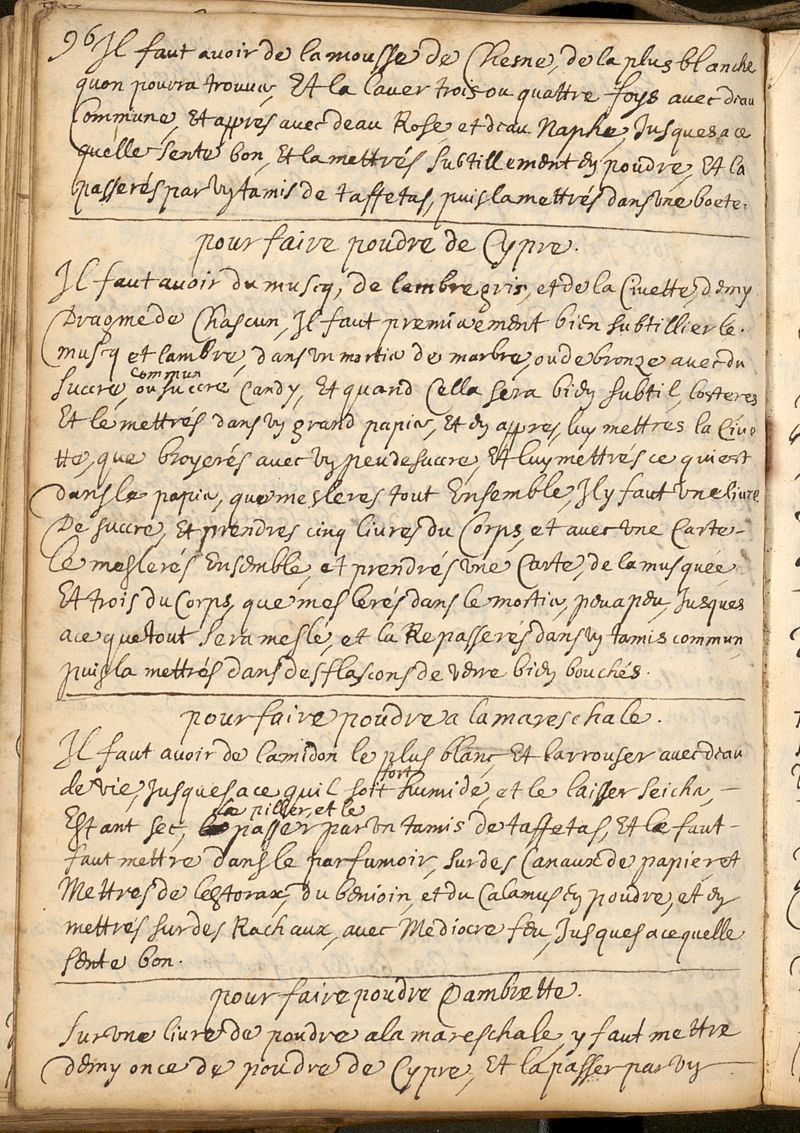 96
Il faut avoir de la mousse de Chesne, de la plus blanche
quon pourra trouver, Et la laver trois ou quattre foys avec deau
Commune, Et appres avec deau Rose et deau Naphe, Jusques a ce
quelle sente bon, Et la mettrés subtillement en poudre, Et la
passerés par un tamis de taffetas, puis la mettrés dans une boete.
pour faire poudre de Cypre.
Il faut avoir du muscq, de lambre gris, et de la Civette, demy
Dragme de Chascun, Il faut premierement bien subtillier le.
muscq et lambre, dans un mortier de marbre, ou de bronze avec du
commun
succre, ou succre Candy, Et quand Cella sera bien subtil, losteres
Et le mettrés dans un grand papier, Et en appres, luy mettrés la Cive
tte, que broyerés avec un peu de succre, Et luy mettrés ce qui est
dans le papier, que mesleres tout Ensemble, Il y faut une livre
De succre, Et prendres cinq livres du Corps, et avec une Carte-
le meslerés Ensemble, et prendrés une Carte, de la musquée
Et trois du Corps, que meslerés dans le mortier, peu a peu, Jusques
a ce que tout sera mesle, et la Repasserés dans un tamis commun
puis la mettrés dans des flascons de verre bien bouchés.
pour faire poudre a la mareschale.
Il faut avoir de lamidon le plus blanc, Et larrouser avec deau
de vie, Jusques a ce quil soit fort humide, et le laisser seicher, -
le piller, et le
Estant sec, passer par un tamis de taffetas, Et le faut-
faut mettre dans le parfumoir, sur des Canaux de papier et
Mettres de lestorax, du benioin, et du Calamus en poudre, et en
mettrés sur des Rachaux, avec Mediocre feu, Jusques a ce quelle
sente bon.
pour faire poudre Dambrette.
Sur une livre de poudre a la mareschale, y faut mettre
demy once de poudre de Cypre, Et la passer par un